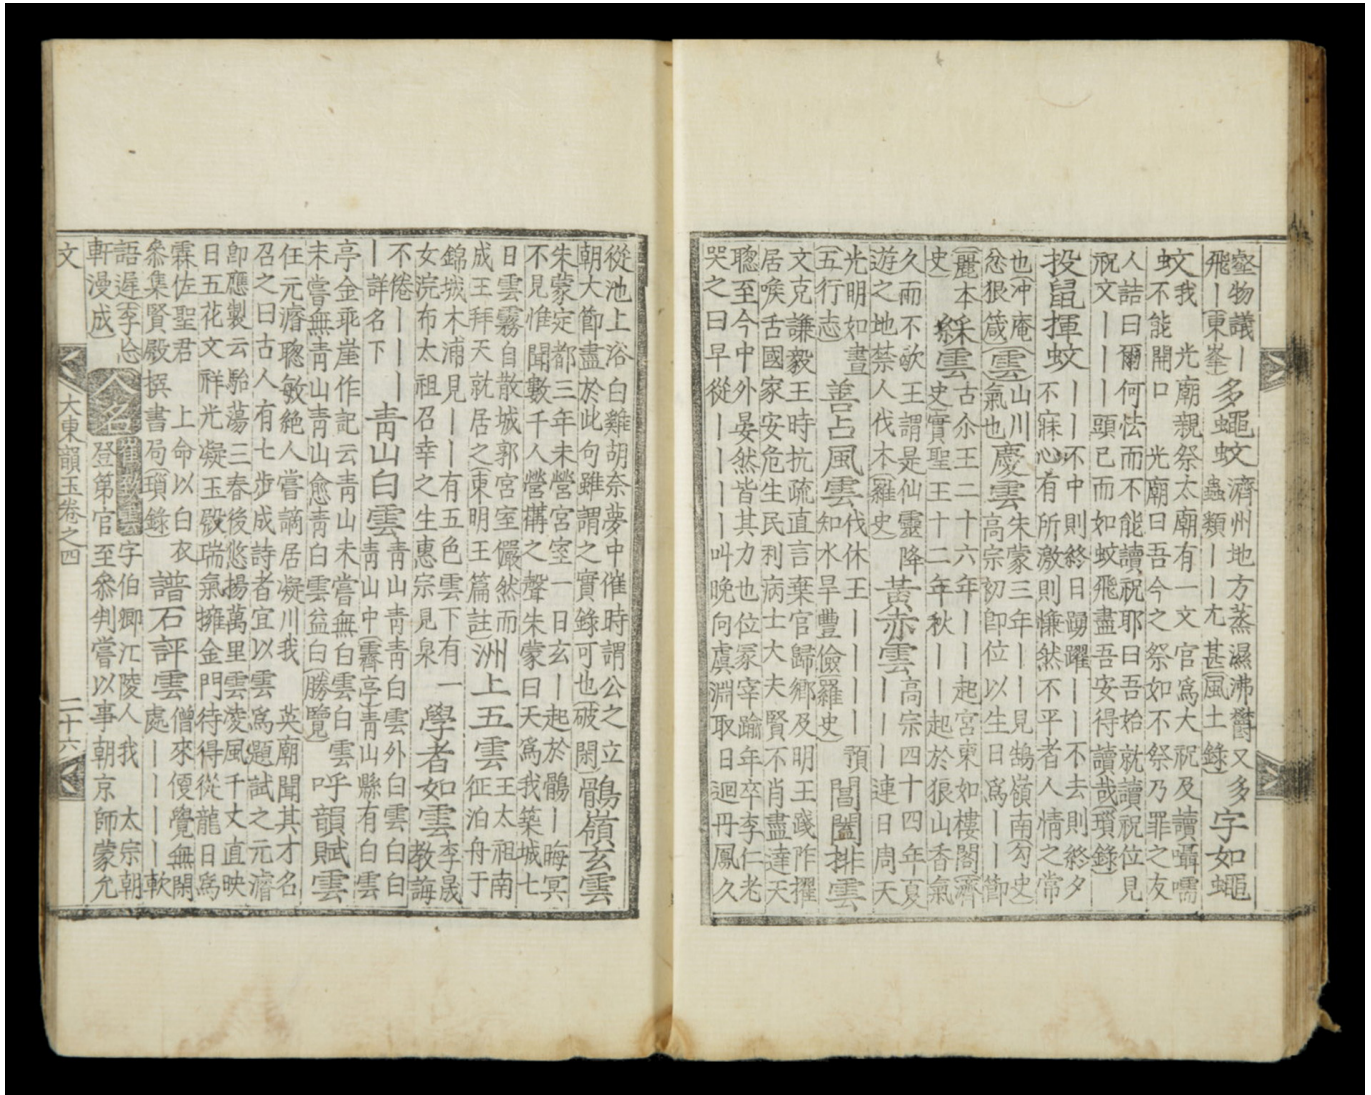 壑物議〡
飛〡(東峯)
多蠅蚊
濟州地方蒸濕沸鬱又多
蟲類〡〡尤甚(風土錄)
字如蠅
蚊
我 光廟親祭太廟有一文官爲大祝及讀囁嚅
不能開口 光廟曰吾今之祭如不祭乃罪之友
人詰曰爾何怯而不能讀祝耶曰吾始就讀祝位見
祝文〡〡〡頭已而如蚊飛盡吾安得讀哉(瑣錄)
投鼠揮蚊
〡〡不中則終日踴躍〡〡不去則終夕
不寐心有所激則慊然不平者人情之常
也冲庵
忿狠箴
(雲)
山川
氣也
慶雲
朱蒙三年〡〡見鵠嶺南(勾史)
高宗初卽位以生日爲〡〡節
(麗本
史)
綵雲
古尒王二十六年〡〡起宮東如樓閣(濟
史)實聖王十二年秋〡〡起於狼山香氣
久而不歇王謂是仙靈降
遊之地禁人伐木(羅史)
黃赤雲
高宗四十四年夏
〡〡〡連日周天
光明如晝
(五行志)
善占風雲
伐休王〡〡〡〡預
知水旱豊儉(羅史)
閶闔排雲
文克謙毅王時抗疏直言棄官歸鄉及明王踐阼擢
居喉舌國家安危生民利病士大夫賢不肖盡達天
聰至今中外晏然皆其力也位冢宰踰年卒李仁老
哭之曰早從〡〡〡〡叫晚向虞淵取日迴丹鳳久
從池上浴白雞胡奈夢中催時謂公之立
朝大節盡於此句雖謂之實錄可也(破閑)
鶻嶺玄雲
朱蒙定都三年未營宮室一日玄〡起於鶻〡晦冥
不見惟聞數千人營構之聲朱蒙曰天爲我築城七
日雲霧自散城郭宮室儼然而
成王拜天就居之(東明王篇註)
洲上五雲
王太祖南
征泊舟于
錦城木浦見〡〡有五色雲下有一
女浣布太祖召幸之生惠宗見泉
學者如雲
李晟
教誨
不倦〡〡〡
〡詳名下
靑山白雲
靑山靑靑白雲外白雲白白
靑山中(霽亭)靑山縣有白雲
亭金乖崖作記云靑山未嘗無白雲白雲
未嘗無靑山靑山愈靑白雲益白(勝覽)
呼韻賦雲
任元濬聰敏絶人嘗謫居凝川我 英廟聞其才名
召之曰古人有七步成詩者宜以雲爲題試之元濬
卽應製云駘蕩三春後悠揚萬里雲凌風千丈直映
日五花文祥光凝玉殿瑞氣擁金門待得從龍日爲
霖佐聖君 上命以白衣
叅集賢殿撰書局(瑣錄)
譜石評雲
僧來便覺無閑
處〡〡〡〡軟
語遲(李
軒漫成)
人名
崔致雲
字伯卿江陵人我 太宗朝
登第官至叅判嘗以事朝京師蒙允
文
大東韻玉卷之四
二十六